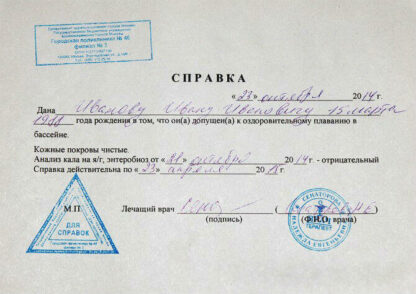 Городская поликлиника № 46
филиал № 3
СПРАВКА
«23» октября 2014 г.
Дана Иванову Ивану Ивановичу 15 марта
года рождения в том, что он(а) допущен(а) к оздоровительному плаванию в
бассейне.
Кожные покровы чистые.
Анализ кала на я/г, энтеробиоз от « » октября 2014г - отрицательный
Справка действительна по « 23 » апреля г.
М.П.
ДЛЯ
СПРАВОК
Лечащий врач ( )
(подпись) (Ф.И.О. врача)
СЕНАТОРОВА
НАДЕЖДА ЕВГЕНЬЕВНА
ТЕРАПЕВТ